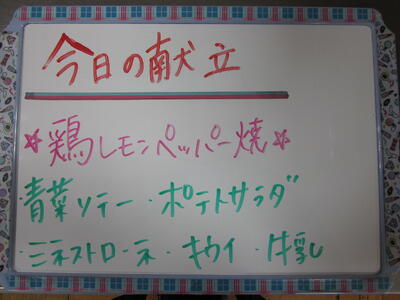 今日の献立
☆鶏レモンペッパー焼☆
青菜ソテー・ポテトサラダ
・ミネストローネ・キウイ・牛乳